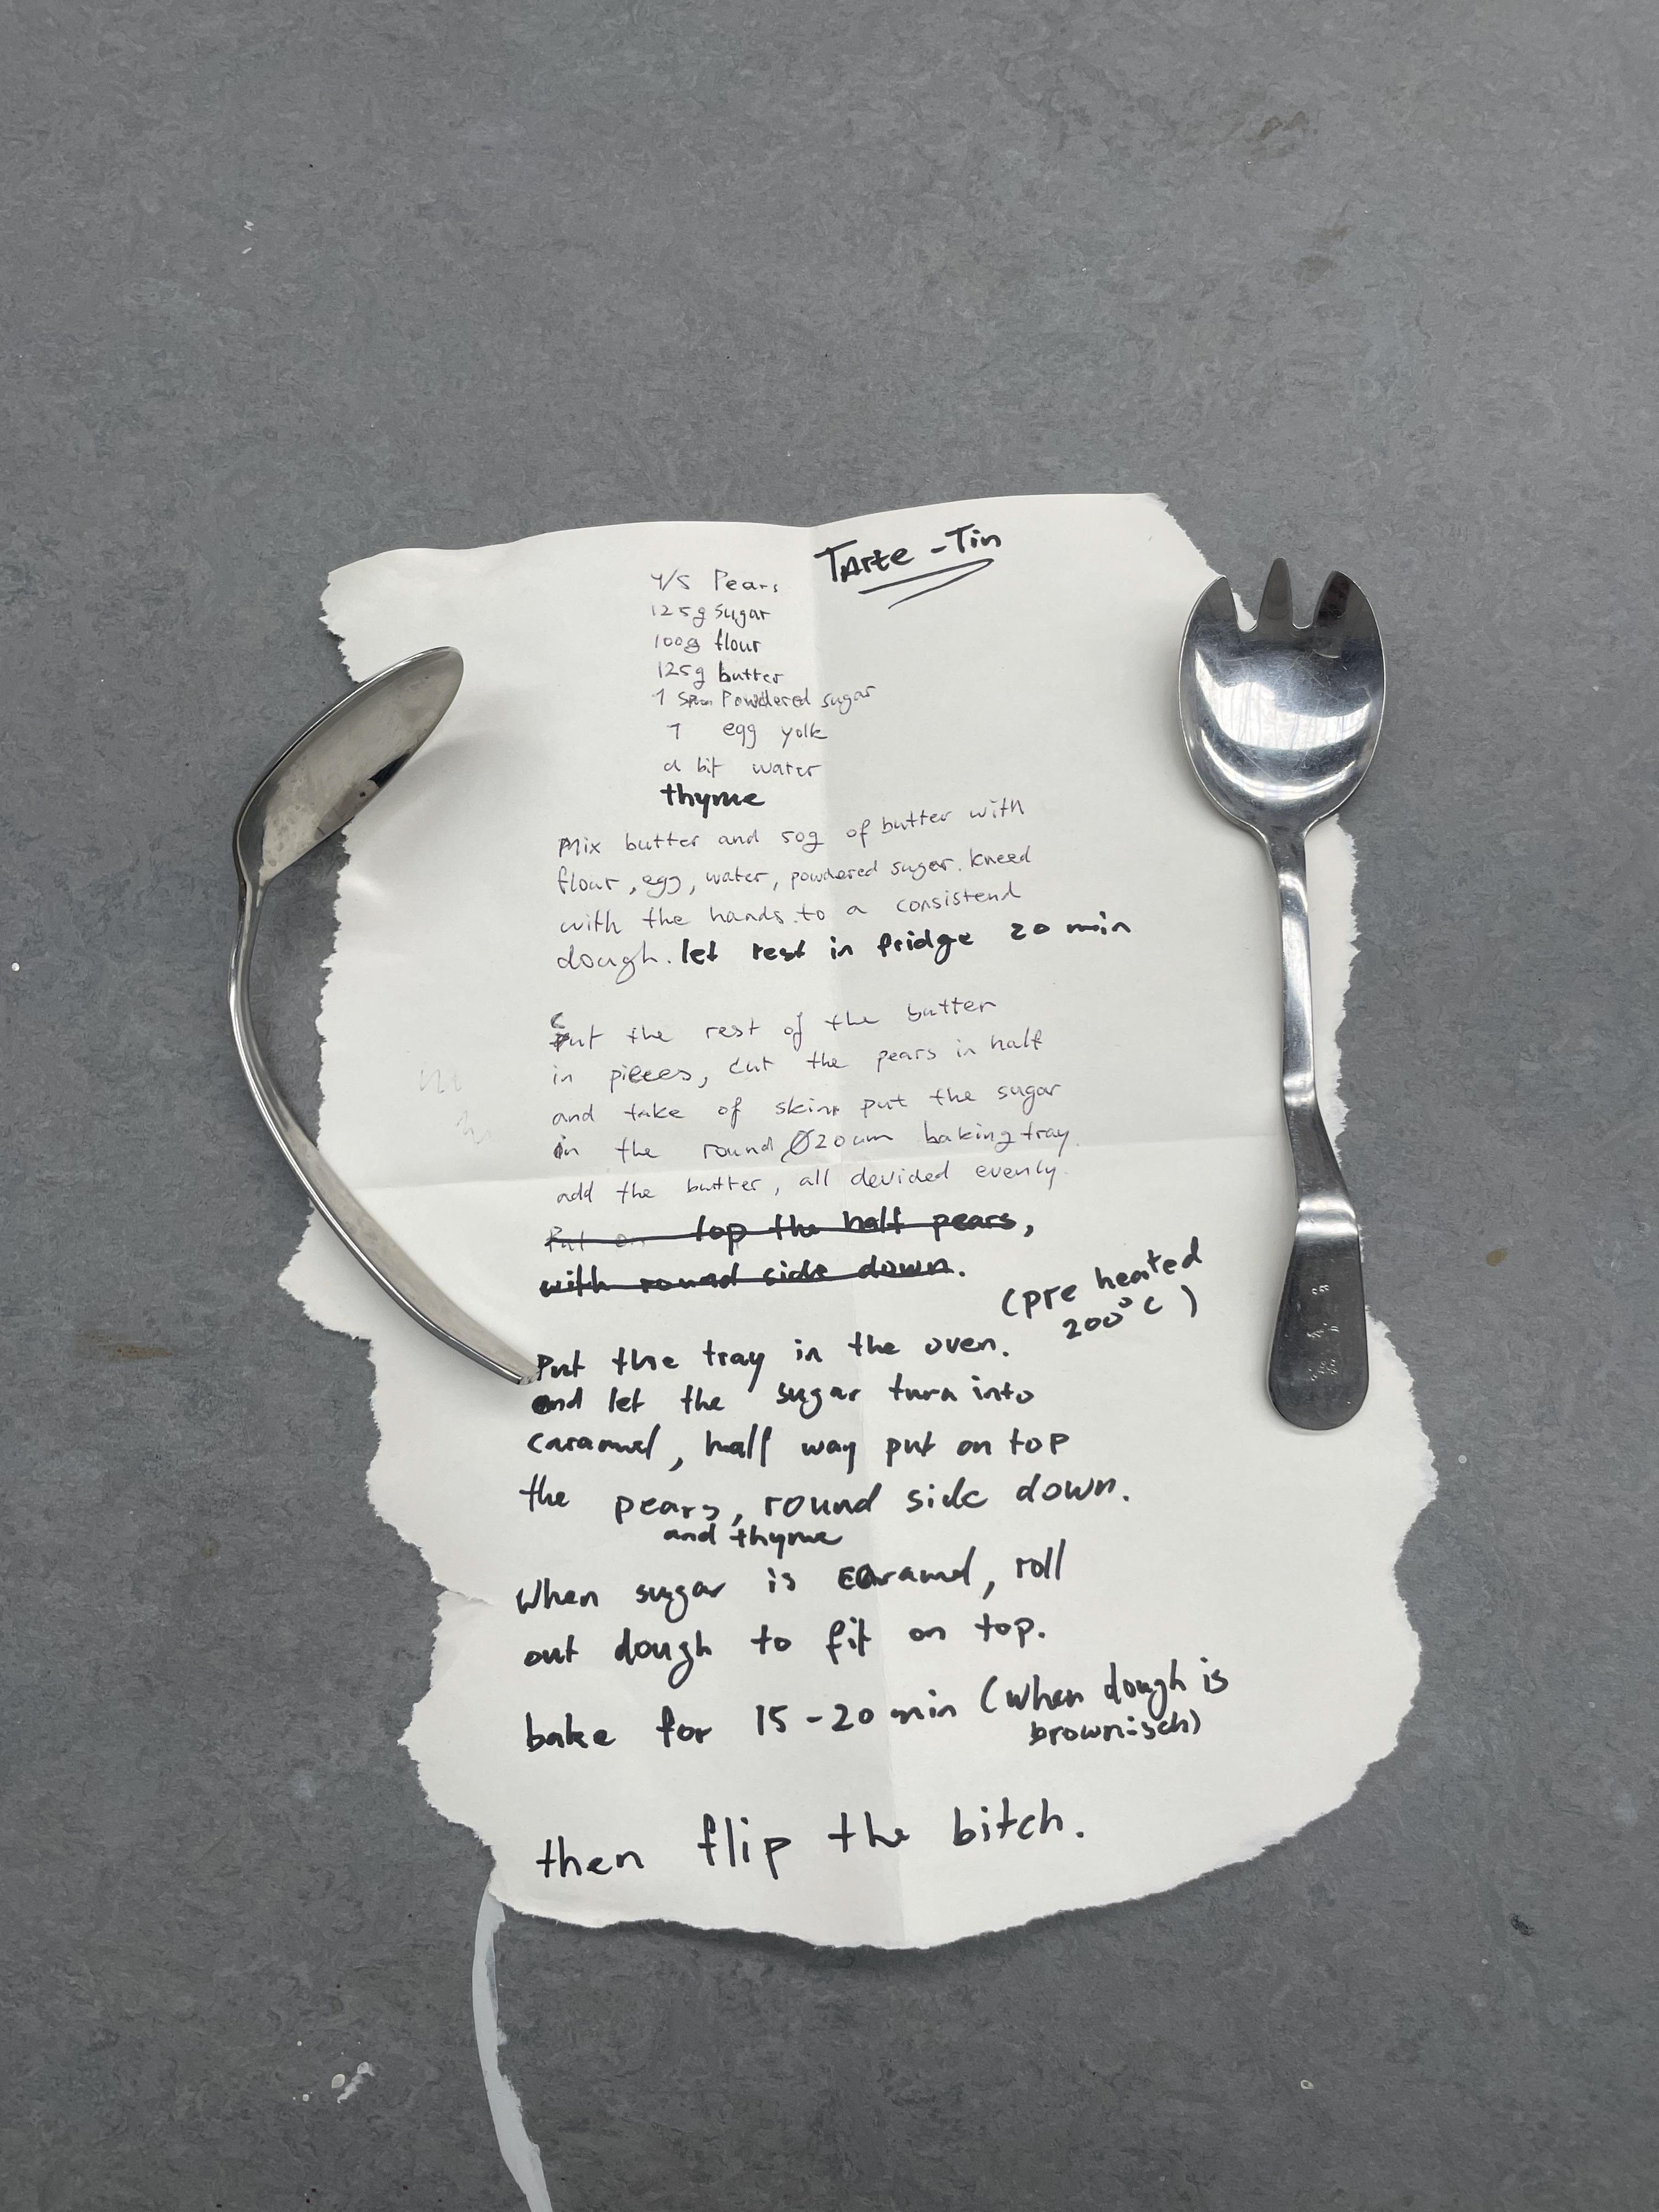 Tarte - Tin
4/5 Pears
125g sugar
100g flour
125g butter
1 spoon Powdered sugar
1 egg yolk
a bit water
thyme
Mix butter and 50g of butter with
flour, egg, water, powdered sugar. kneed
with the hands to a consistend
dough. let rest in fridge 20 min
Cut the rest of the butter
in pieces, cut the pears in half
and take of skin. put the sugar
in the round Ø20cm baking tray.
add the butter, all devided evenly.
Put on top the half pears,
with round side down.
(pre heated
200°C)
Put the tray in the oven.
and let the sugar turn into
caramel, half way put on top
the pears, round side down.
and thyme
When sugar is caramel, roll
out dough to fit on top.
bake for 15-20 min (when dough is
brownisch)
then flip the bitch.